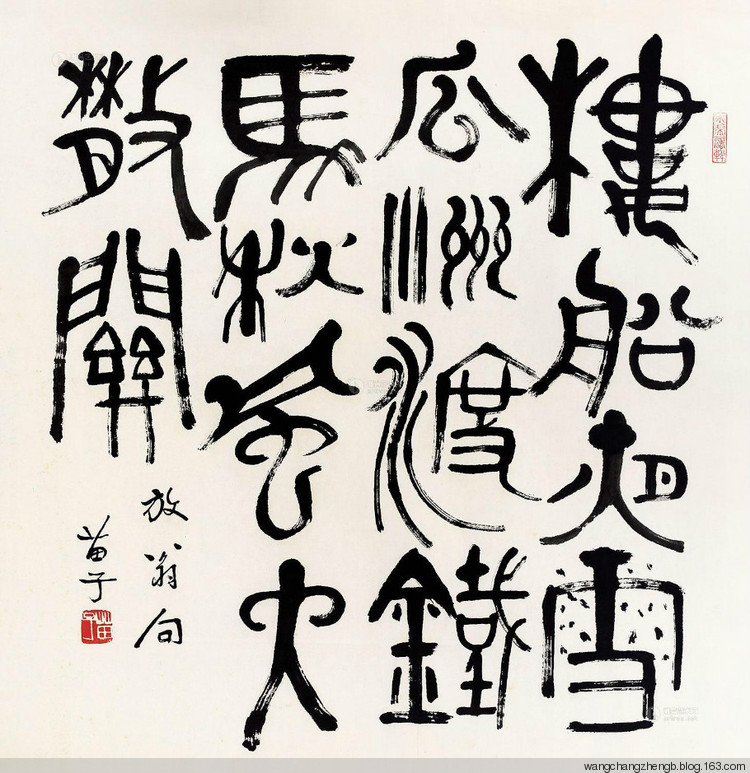 樓船夜雪
瓜洲渡鐵
馬秋風大
散關
放翁句
苗子
wangchangzhengb.blog.163.com